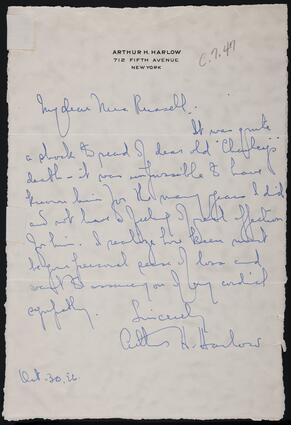 ARTHUR H. HARLOW
712 FIFTH AVENUE
NEW YORK
C.7.47
My dear Miss Russell:
It was quite
a shock to read of dear old "Charley's"
death - it was impossible to have
known him for the many years I did
and not have a feeling of real affection
for him. I realize how keen must
be your personal sense of loss and
want to assure you of my cordial
sympathy.
Sincerely
Arthur H. Harlow
Oct. 30, 26.